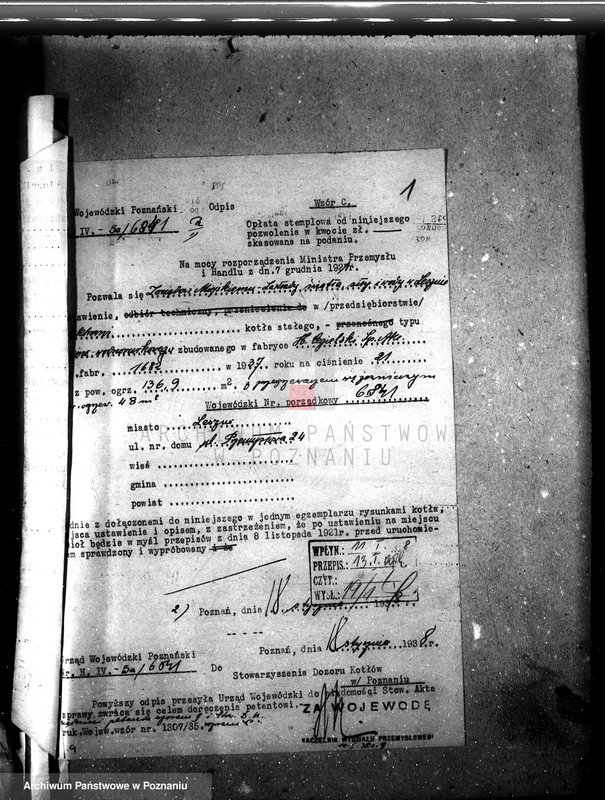 1
Wojewódzki Poznański Odpis Wzór C.
IV.-5a/6841
Opłata stemplowa od niniejszego
pozwolenia w kwocie zł.
skasowane na podaniu.
Na mocy rozporządzenia Ministra Przemysłu
i Handlu z dn.7 grudnia 1921r.
Pozwala się
awienie, odbiór techniczny, przeniesienie do w /przedsiębiorstwie/
kotła stałego, - przenośnego typu
zbudowanego w fabryce H. Cegielski Sp. Akc.
fabr. 1682 w 1937 roku na ciśnienie 21
z pow. ogrz. 136.9 m2.
48 m²
Wojewódzki Nr. porządkowy 6841
miasto Leszno
ul. nr. domu 24
wieś
gmina
powiat
ARCHIWUM PAŃSTWOWE
W POZNANIU
dnie z dołączonemi do niniejszego w jednym egzemplarzu rysunkami kotła,
jsca ustawienia i opisem, z zastrzeżeniem, że po ustawieniu na miejscu
ioł będzie w myśl przepisów z dnia 8 listopada 1921r. przed uruchomie-
em sprawdzony i wypróbowany
WPŁYN.: 11 I. 8
PRZEPIS.: 13.I.
CZYT.:
WYSŁ.:
2) Poznań, dnia 18 stycznia 1938
Poznań, dnia 18 stycznia 1938r.
Urząd Wojewódzki Poznański
Nr. H. IV.-5a/6841 Do
Stowarzyszenia Dozoru Kotłów
w/ Poznaniu
Powyższy odpis przesyła Urząd Wojewódzki do wiadomości Stow. Akta
sprawy zwraca się celem doręczenia petentowi.
ZA WOJEWODĘ
ruk.Wojew.wzór nr. 1307/35.
NACZELNIK WYDZIAŁU PRZEMYSŁOWEGO
Archiwum Państwowe w Poznaniu